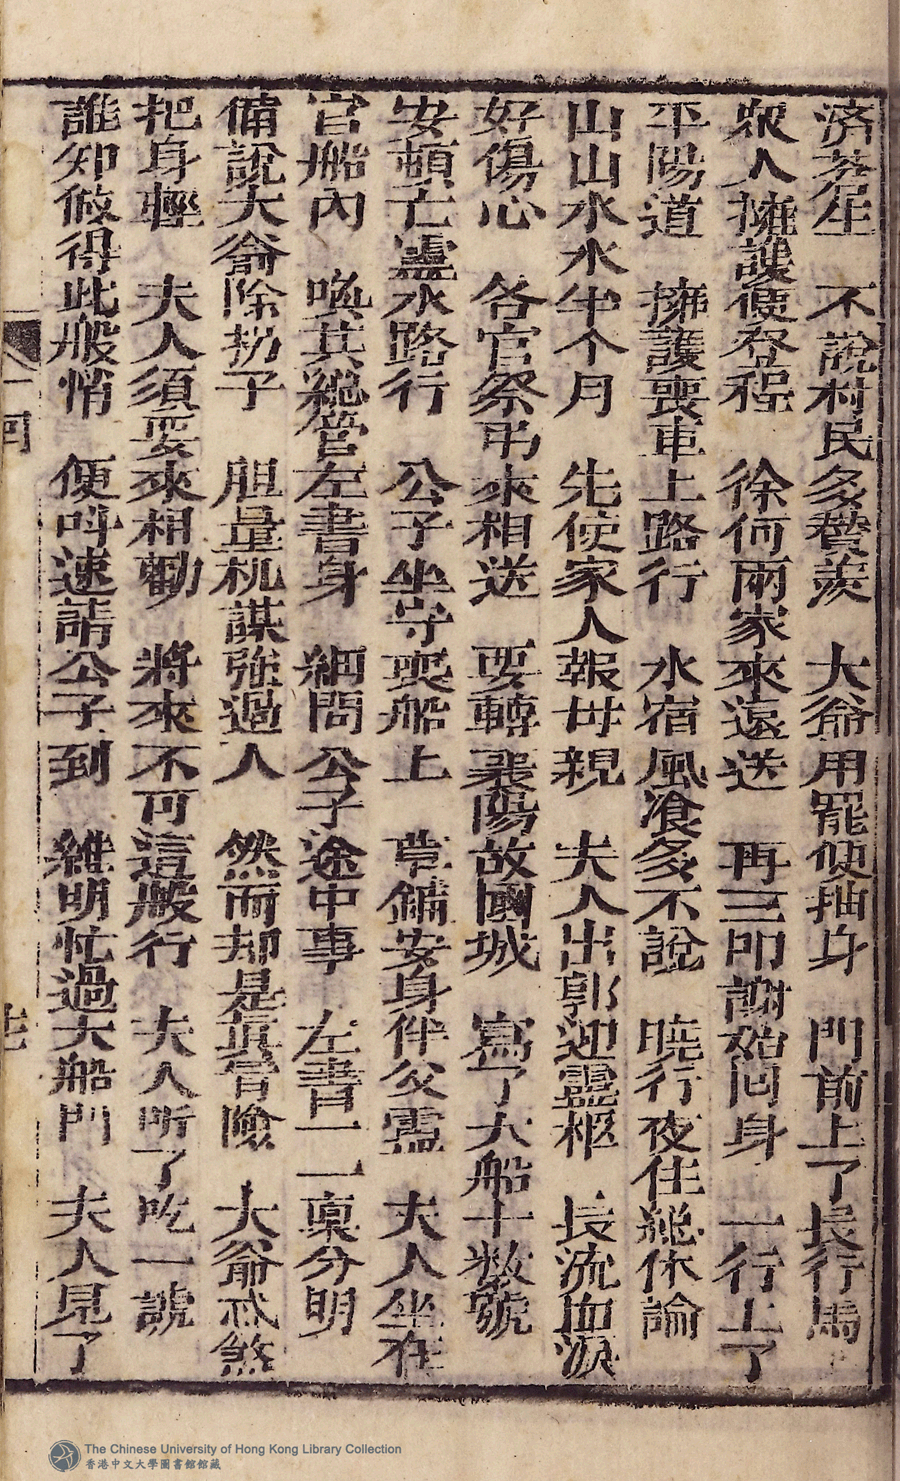 済芬生　不說村民多贊羨　大爺用罷便抽身　門前上了長行馬
衆人擁護便登程　徐何兩家來遠送　再三叩謝始回身　一行上了
平陽道　擁護喪車上路行　水宿風飡多不說　曉行夜住総休論
山山水水半个月　先使家人報母親　夫人出郭迎靈柩　長流血淚
好傷心　各官祭弔來相送　要轉襄陽故國城　寫了大船十数號
安頓亡靈水路行　公子坐守喪船上　草鋪安身伴父靈　夫人坐在
官船內　喚其総管左書身　細問公子途中事　左書一一稟分明
備說大爺除拐子　胆量机謀強過人　然而却是真冒險　大爺忒煞
把身輕　夫人須要來相勸　將來不可這般行　夫人听了吃一諕
誰知做得此般情　便呌速請公子到　維明忙過大船門　夫人見了
The Chinese University of Hong Kong Library Collection
香港中文大學圖書館館藏